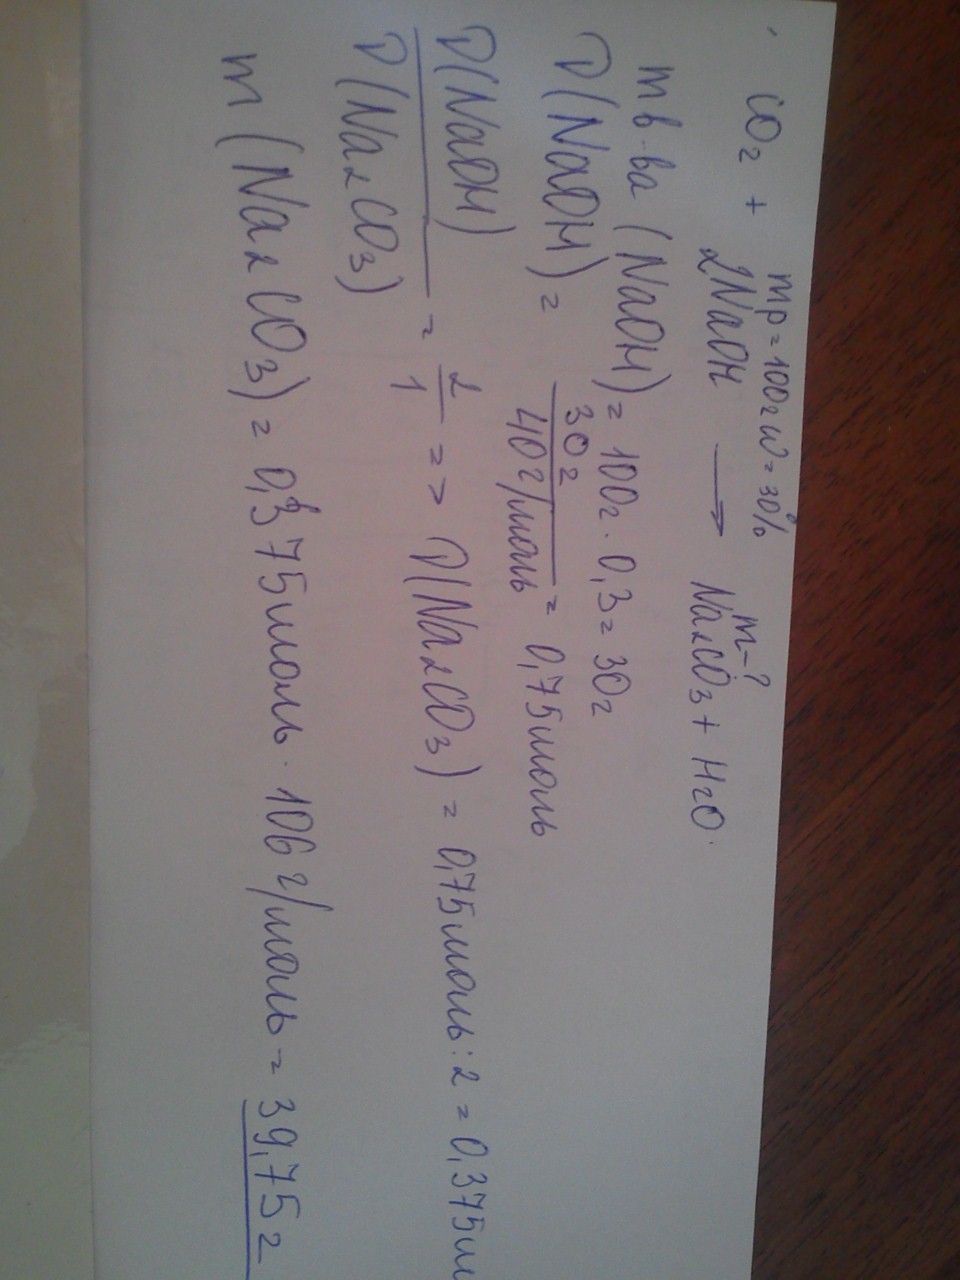 mp=100г w=30% m-?
CO2 + 2NaOH → Na2CO3 + H2O.
m в-ва (NaOH) = 100г · 0,3 = 30г
D(NaOH) = 30г / 40г/моль = 0,75моль
D(NaOH) / D(Na2CO3) = 2/1 => D(Na2CO3) = 0,75моль : 2 = 0,375м
m (Na2CO3) = 0,375моль · 106 г/моль = 39,75г